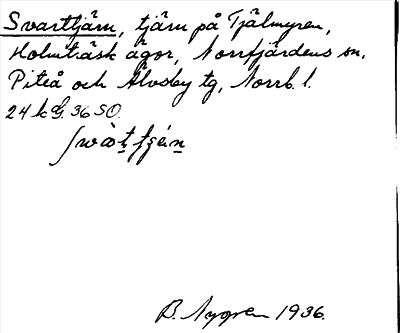 Svarttjärn, tjärn på Tjälmyren,
Holmträsk ägor, Norrfjärdens sn,
Piteå och Älvsby tg, Norrb. l.
24 k G. 36 SO.
B. Nygren 1936.